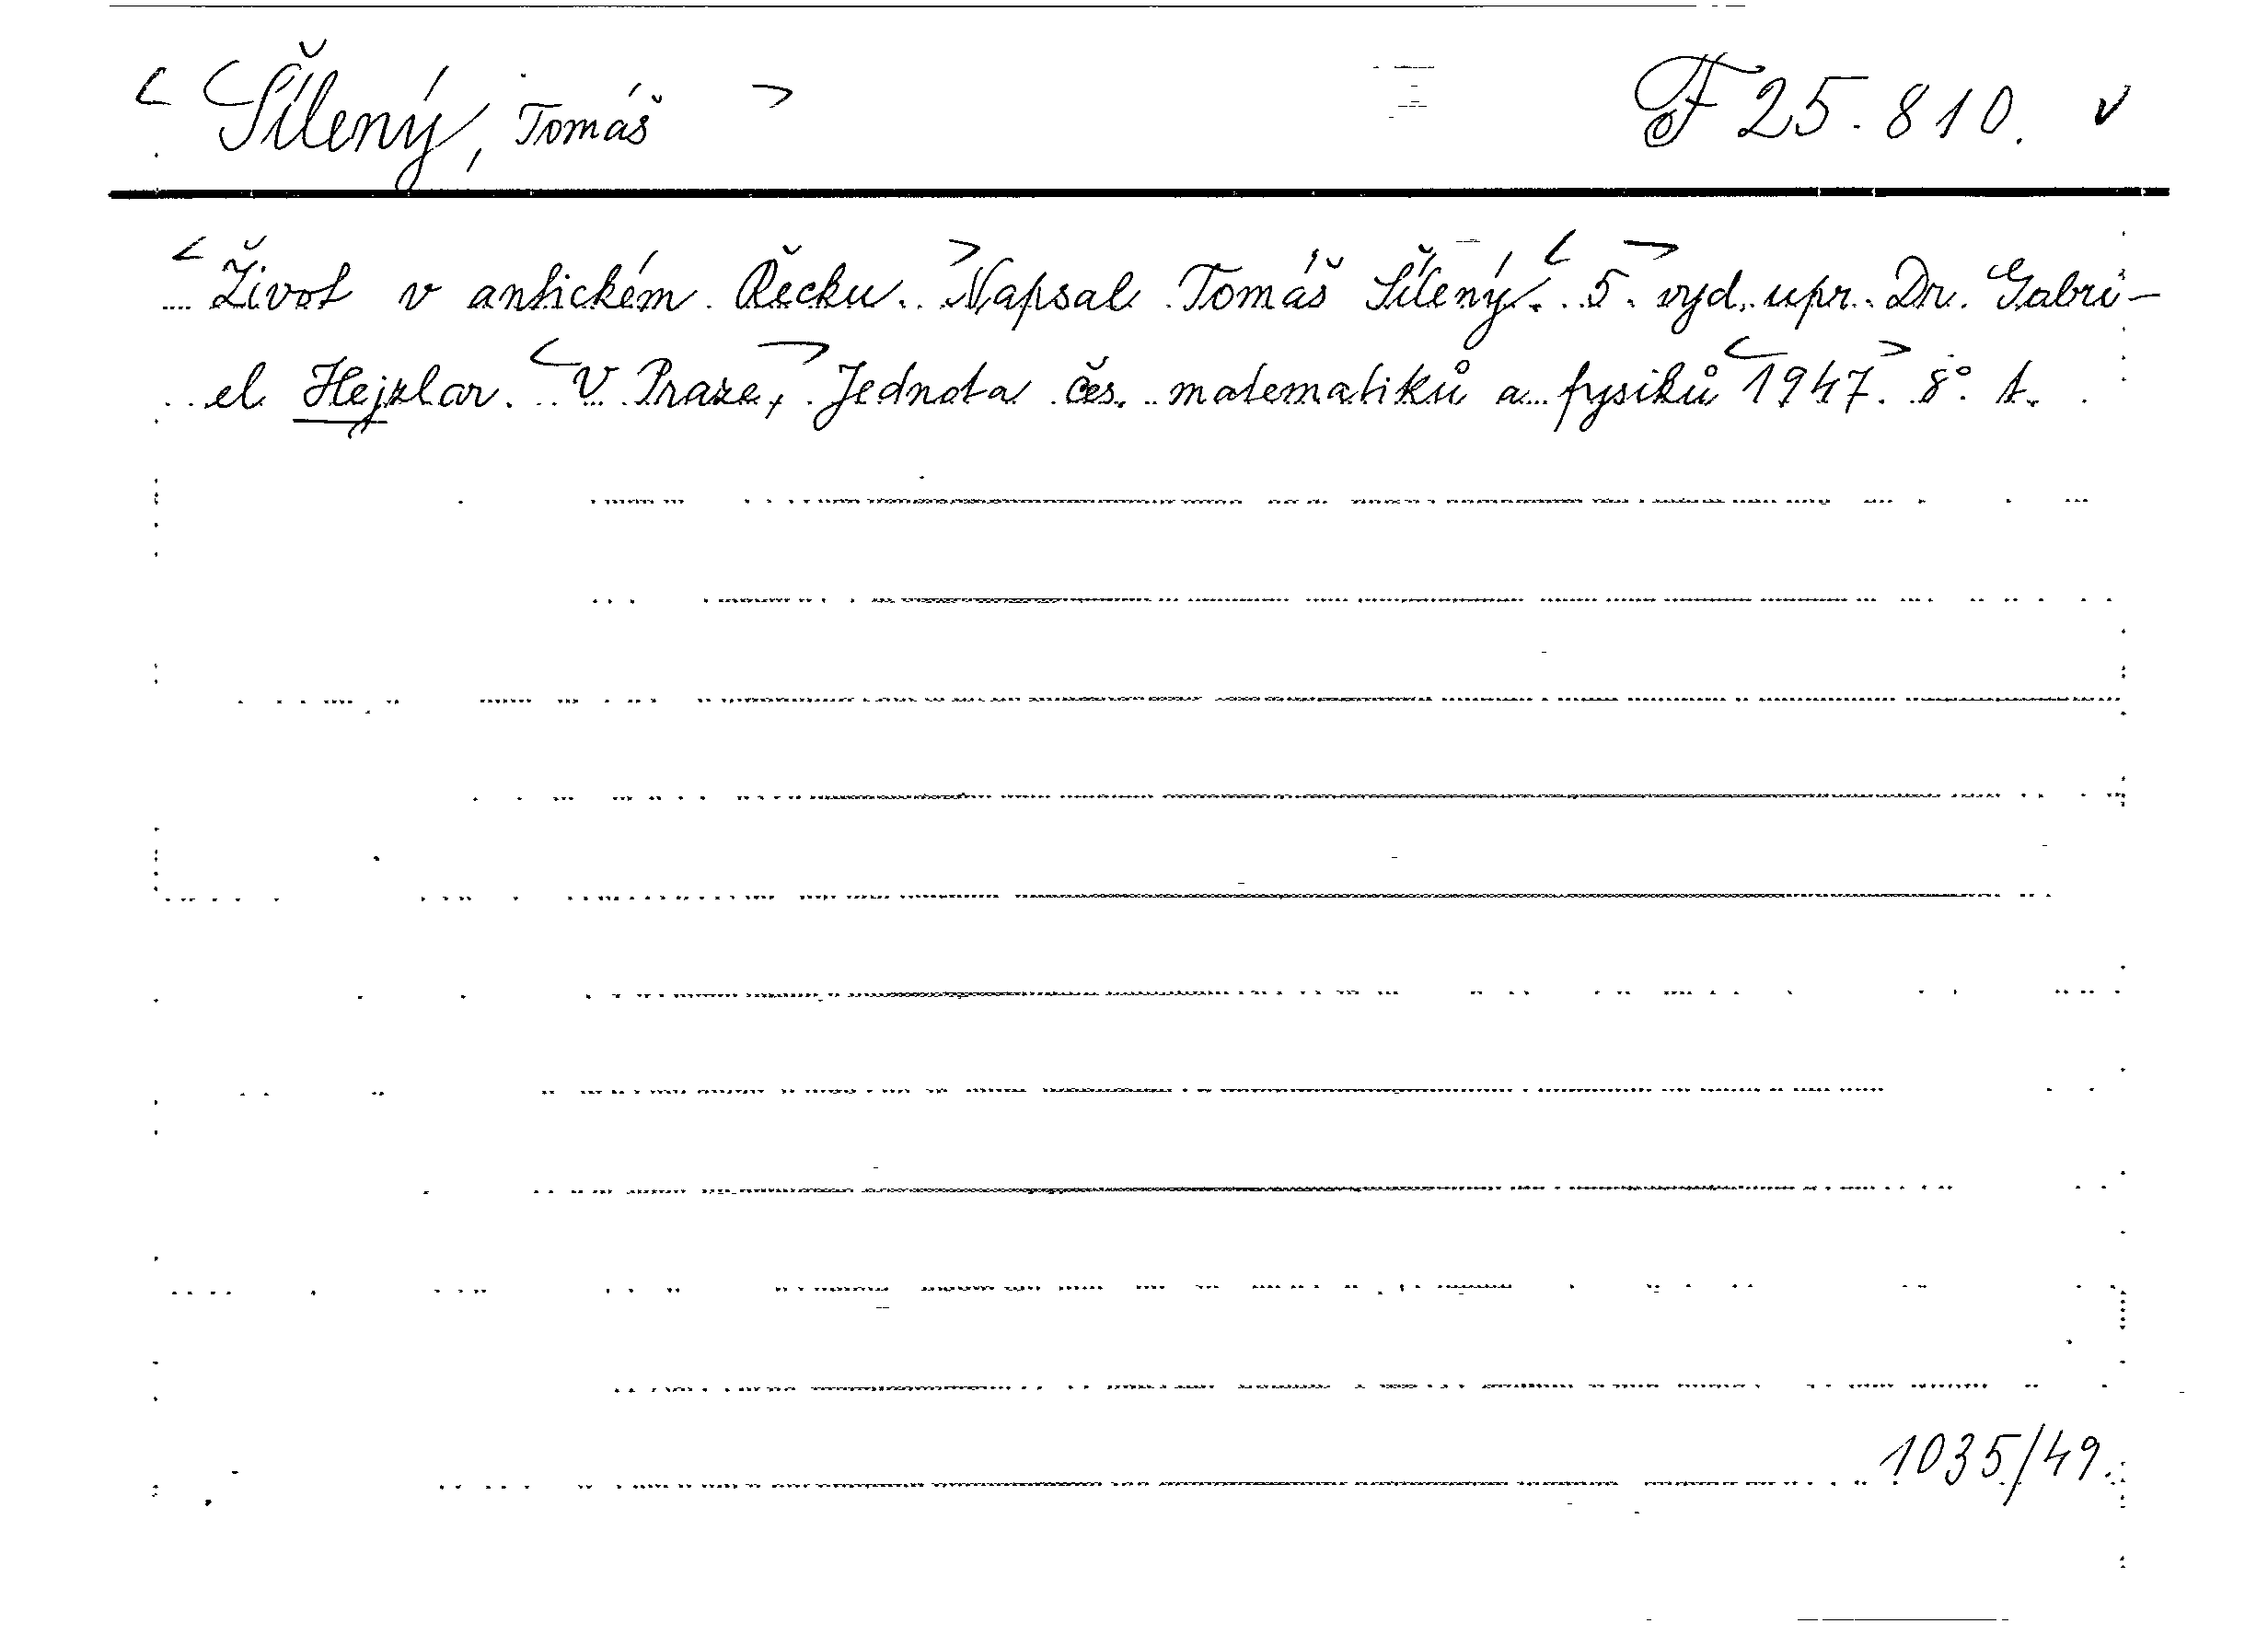 < Šílený, Tomáš > F 25.810. v
< Život v antickém Řecku. > Napsal Tomáš Šílený. < 5. > vyd. upr. Dr. Gabri-
el Hejzlar. < V Praze, > Jednota čes. matematiků a fysiků < 1947. > 8°. t.
1035/49.